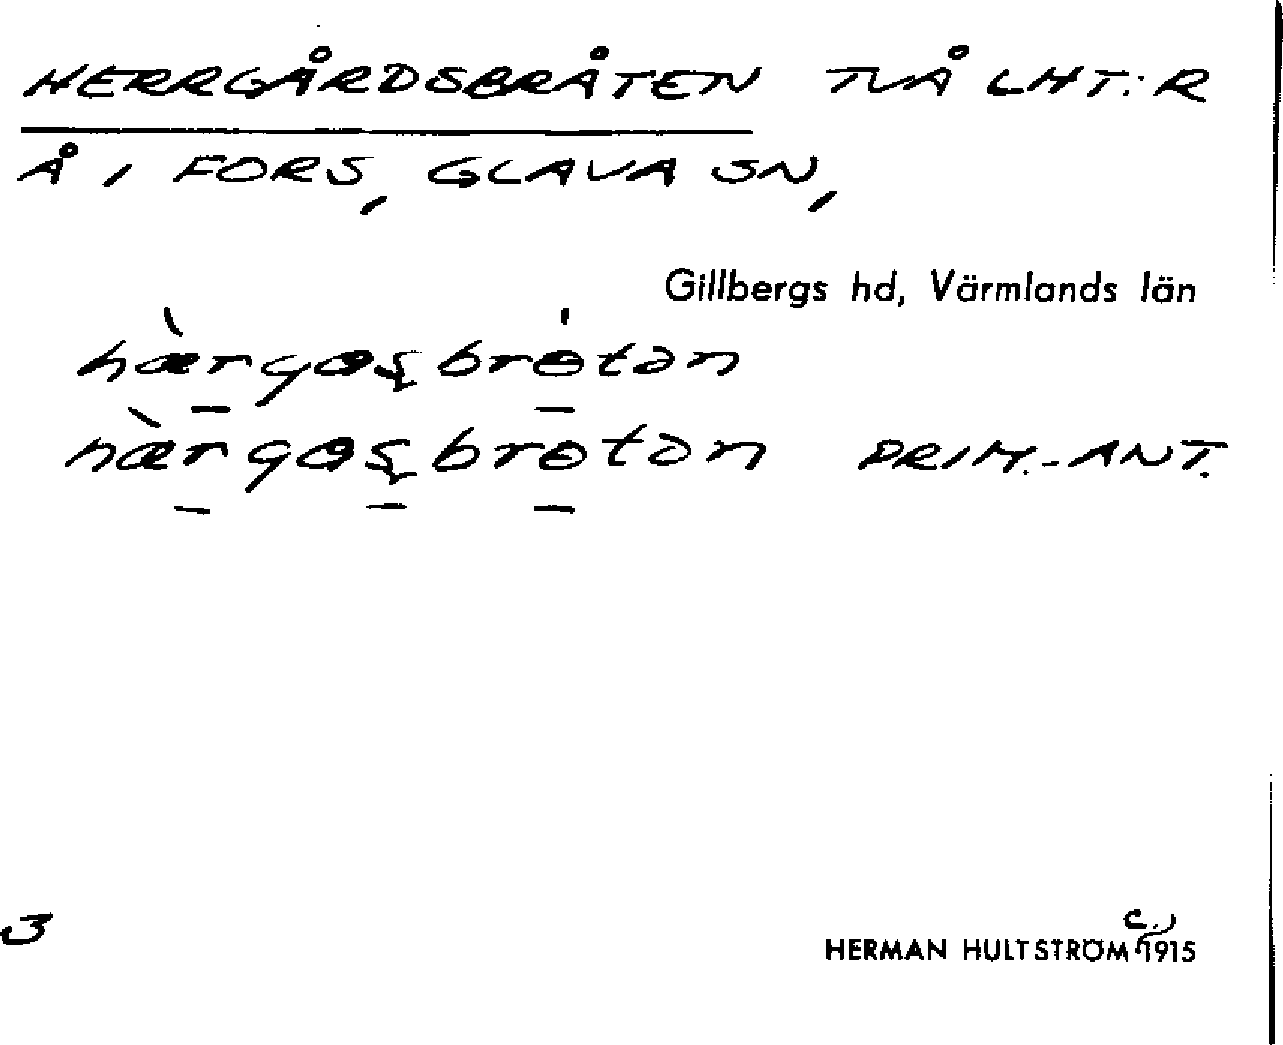 HERRGÅRDSBRÅTEN TVÅ LHT:R
Å 1 FORS, GLAVA SN,
Gillbergs hd, Värmlands län
hæ̀rgɷʂbrɵ́tən
hæ̀rgɷʂbrɵtən PRIM.-ANT.
3
HERMAN HULTSTRÖM c. 1915